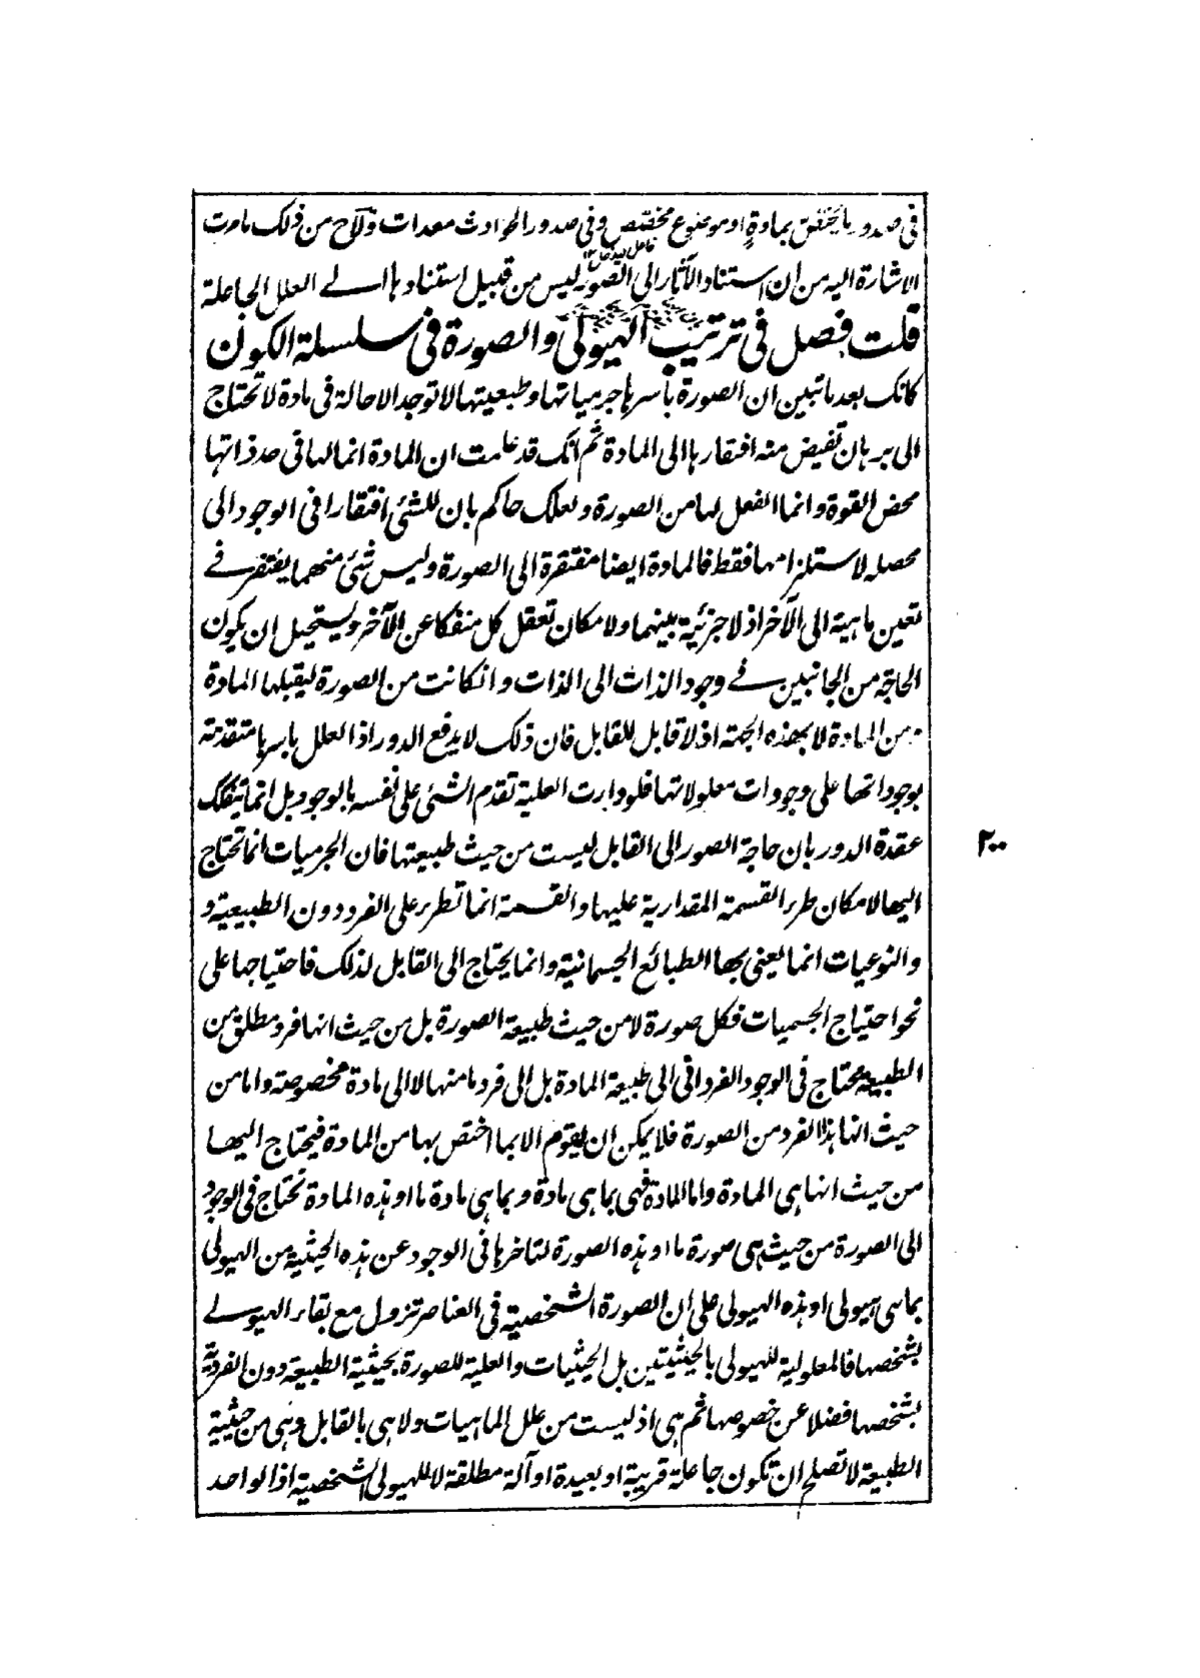 فى صدور ما يختص بمادة او موضوع مختص وفى صدور الحوادث معدات وقد لاح من ذلك مامرت
الاشارة اليه من ان استناد الآثار الى الصور ليس من قبيل استنادها الى العلل الجاعلة
قلت فصل فى ترتيب الهيولى والصورة فى سلسلة الكون
كانك بعد ما تبين ان الصورة باسرها جرمياتها وطبعيتها لا توجد الا حالة فى مادة لا تحتاج
الى برهان تفيض منه افتقارها الى المادة ثم انك قد علمت ان المادة انما لها فى حد ذاتها
محض القوة وانما الفعل لها من الصورة ولعلك حاكم بان للشئ افتقارا فى الوجود الى
محصله لا استلزامها فقط فالمادة ايضا مفتقرة الى الصورة وليس شئ منهما يفتقر فے
تعين ماهية الى الآخر اذ لا جزئية بينهما ولامكان تعقل كل منفكا عن الآخر ويستحيل ان يكون
الحاجة من الجانبين فے وجود الذات الى الذات وانكانت من الصورة ليقبلها المادة
ومن المادة لا بهذه الجهة اذ لا قابل للقابل فان ذلك لا يدفع الدور اذ العلل باسرها متقدمة
بوجوداتها على وجودات معلولاتها فلو دارت العلية تقدم الشئ على نفسه بالوجود بل انما يتفكك
عقدة الدور بان حاجة الصور الى القابل ليست من حيث طبيعتها فان الجرميات انما تحتاج
اليها لامكان طرر القسمة المقدارية عليها والقسمة انما تطرر على الفرد دون الطبيعية و
والنوعيات انما يعنى بها الطبائع الجسمانية وانما يحتاج الى القابل لذلك فاحتياجها على
نحو احتياج الجسميات فكل صورة لا من حيث طبيعة الصورة بل من حيث انها فرد مطلق من
الطبيعة يحتاج فى الوجود الفردانى الى طبيعة المادة بل الى فرد ما منها لا الى مادة مخصوصة واما من
حيث انها هذا الفرد من الصورة فلا يمكن ان يقوم الا بما اختص بها من المادة فيحتاج اليها
من حيث انها هى المادة واما المادة فهى بما هى مادة وبما هى مادة ما او هذه المادة تحتاج فى الوجود
الى الصورة من حيث هى صورة ما او هذه الصورة لتاخرها فى الوجود عن هذه الحيثية من الهيولى
بما هى هيولى او هذه الهيولى على ان الصورة الشخصية فى العناصر تزول مع بقاء الهيولے
بشخصها فالمعلولية للهيولى بالحيثيتين بل الحيثيات والعلية للصورة بحيثية الطبيعة دون الفردية
بشخصها فضلا عن خصوصها ثم هى اذ ليست من علل الماهيات ولا هى بالقابل وهى من حيثية
الطبيعة لا تصلح ان تكون جاعلة قريبة او بعيدة او آلة مطلقة لا للهيولى الشخصية اذ الواحد
٢٠٠